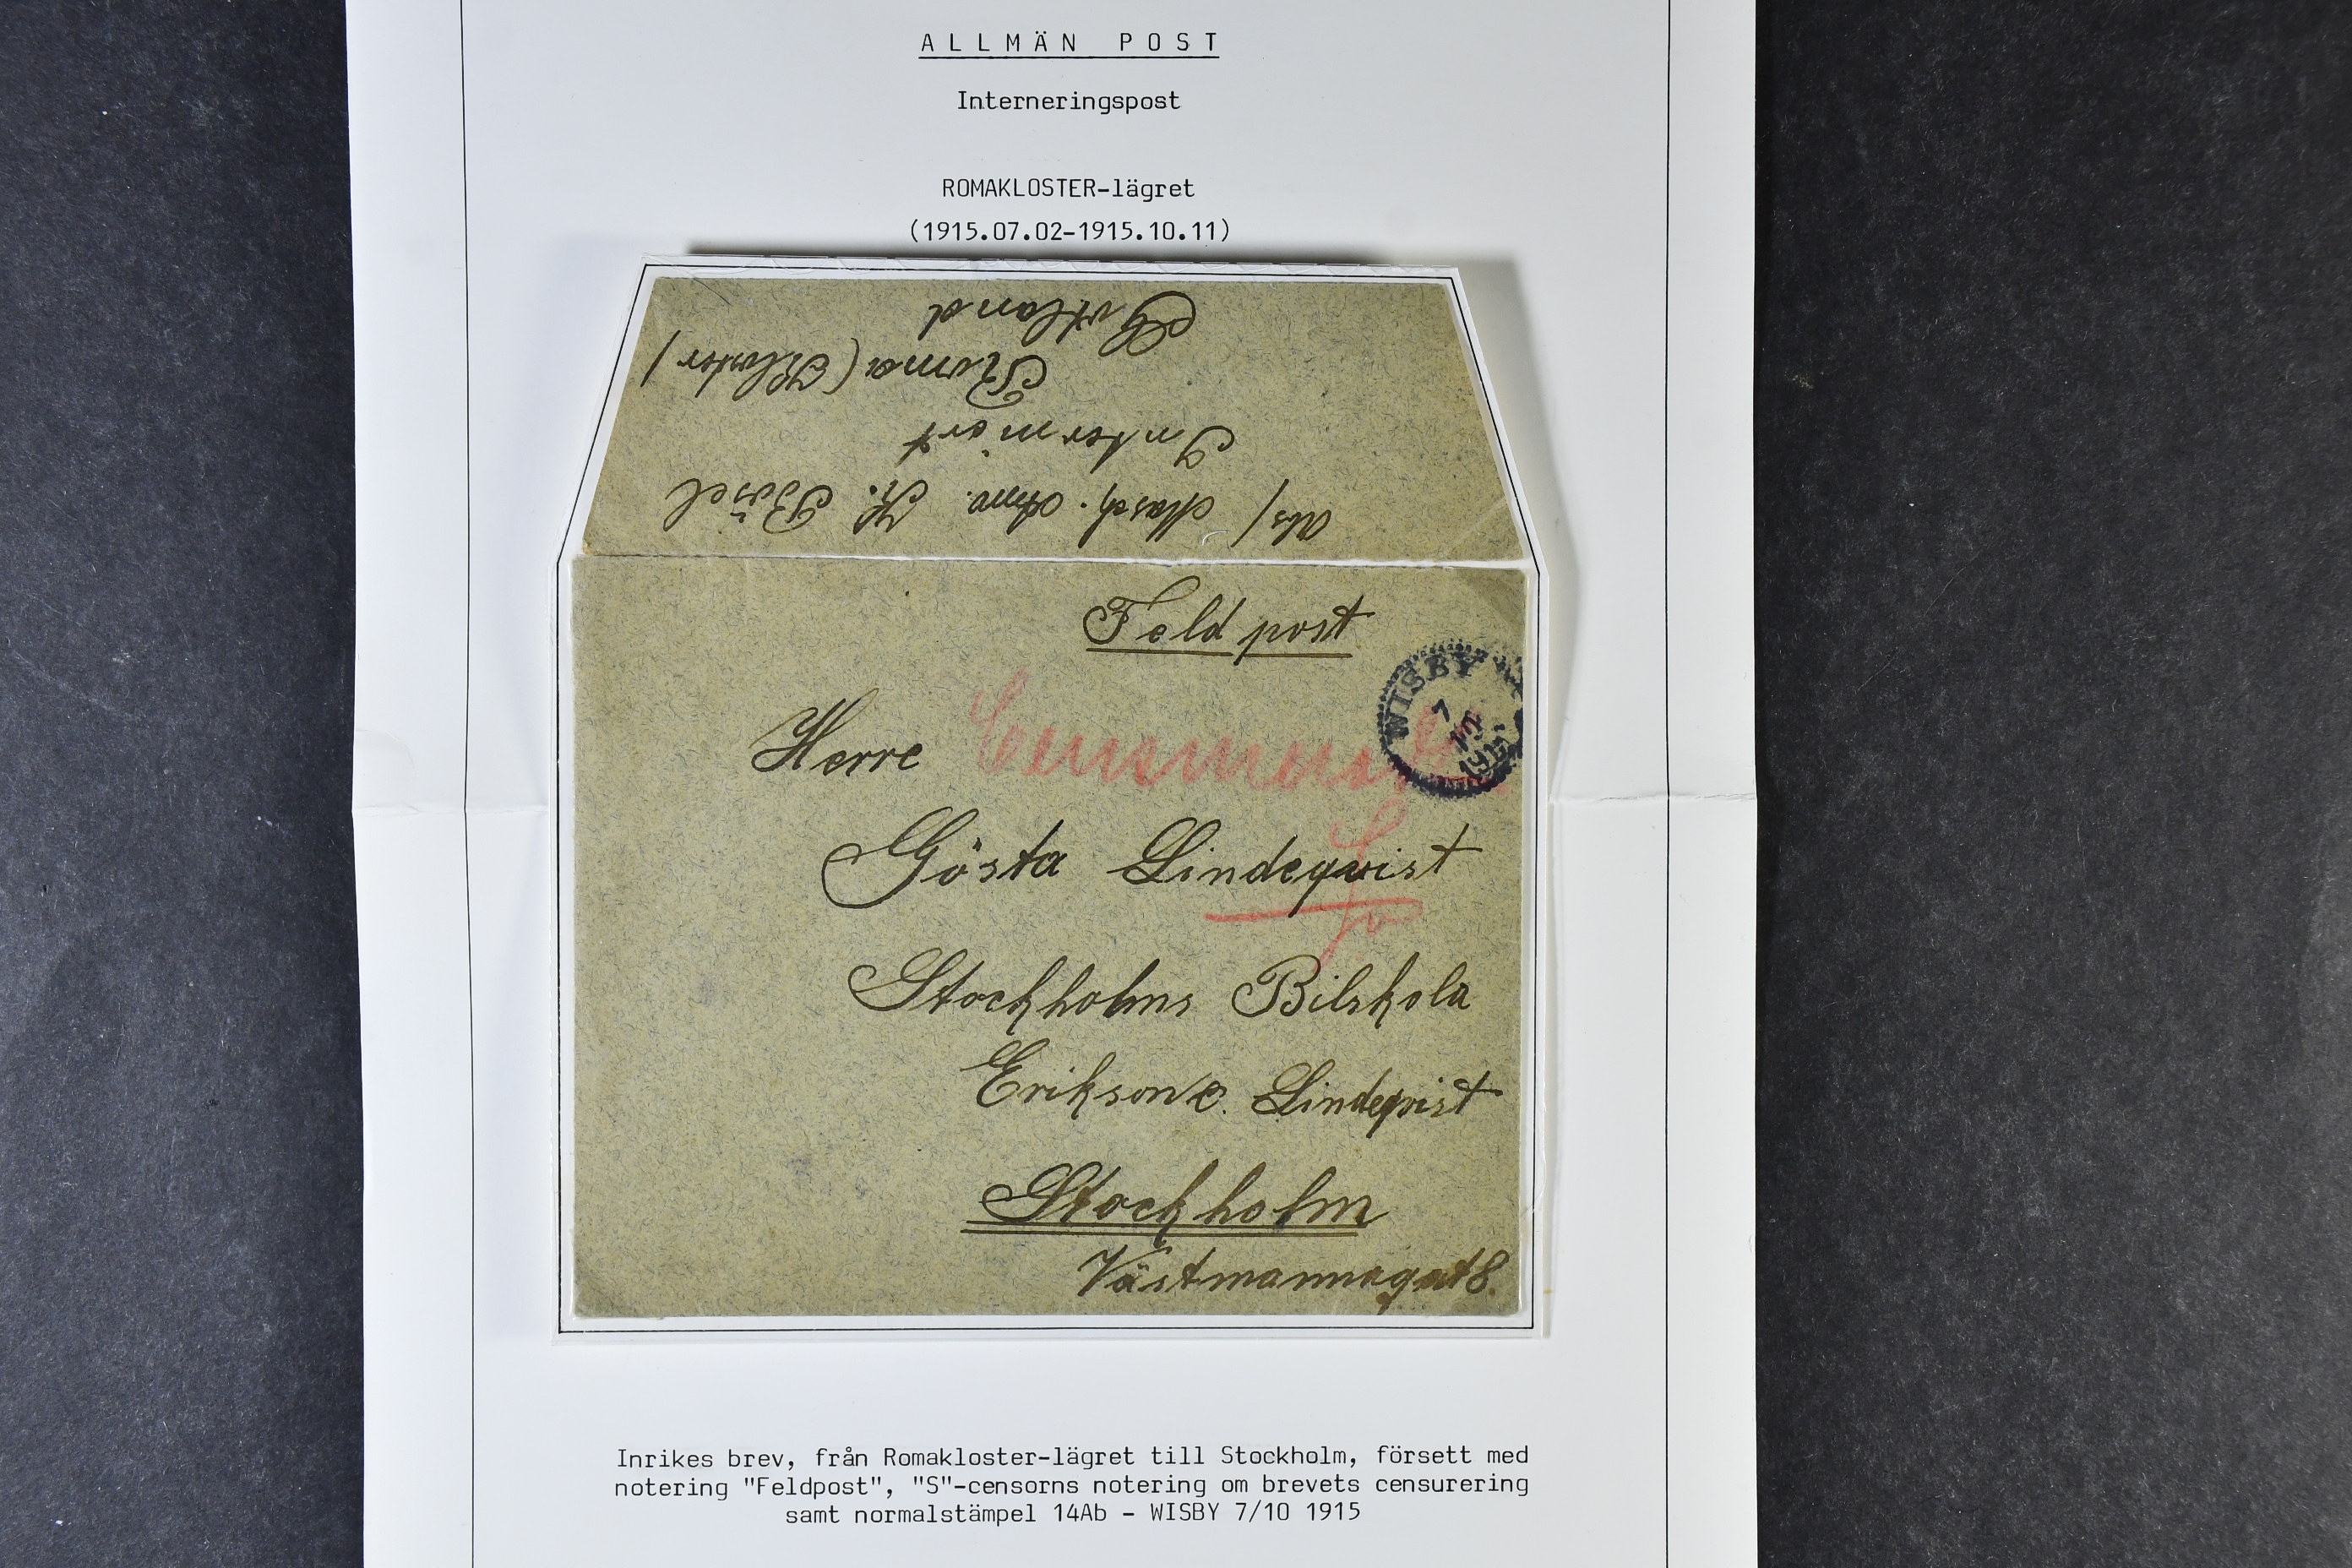 ALLMÄN POST
Interneringspost
ROMAKLOSTER-lägret
(1915.07.02-1915.10.11)
Abs/ Masch. Anw. K. Bösel
Interniert
Roma (Kloster/
Gotland
Feldpost
WISBY
7
10
1915
Herre
Gösta Lindeqvist
Stockholms Bilskola
Erikson &. Lindeqvist
Stockholm
Västmannagat 8.
Inrikes brev, från Romakloster-lägret till Stockholm, försett med
notering "Feldpost", "S"-censorns notering om brevets censurering
samt normalstämpel 14Ab - WISBY 7/10 1915